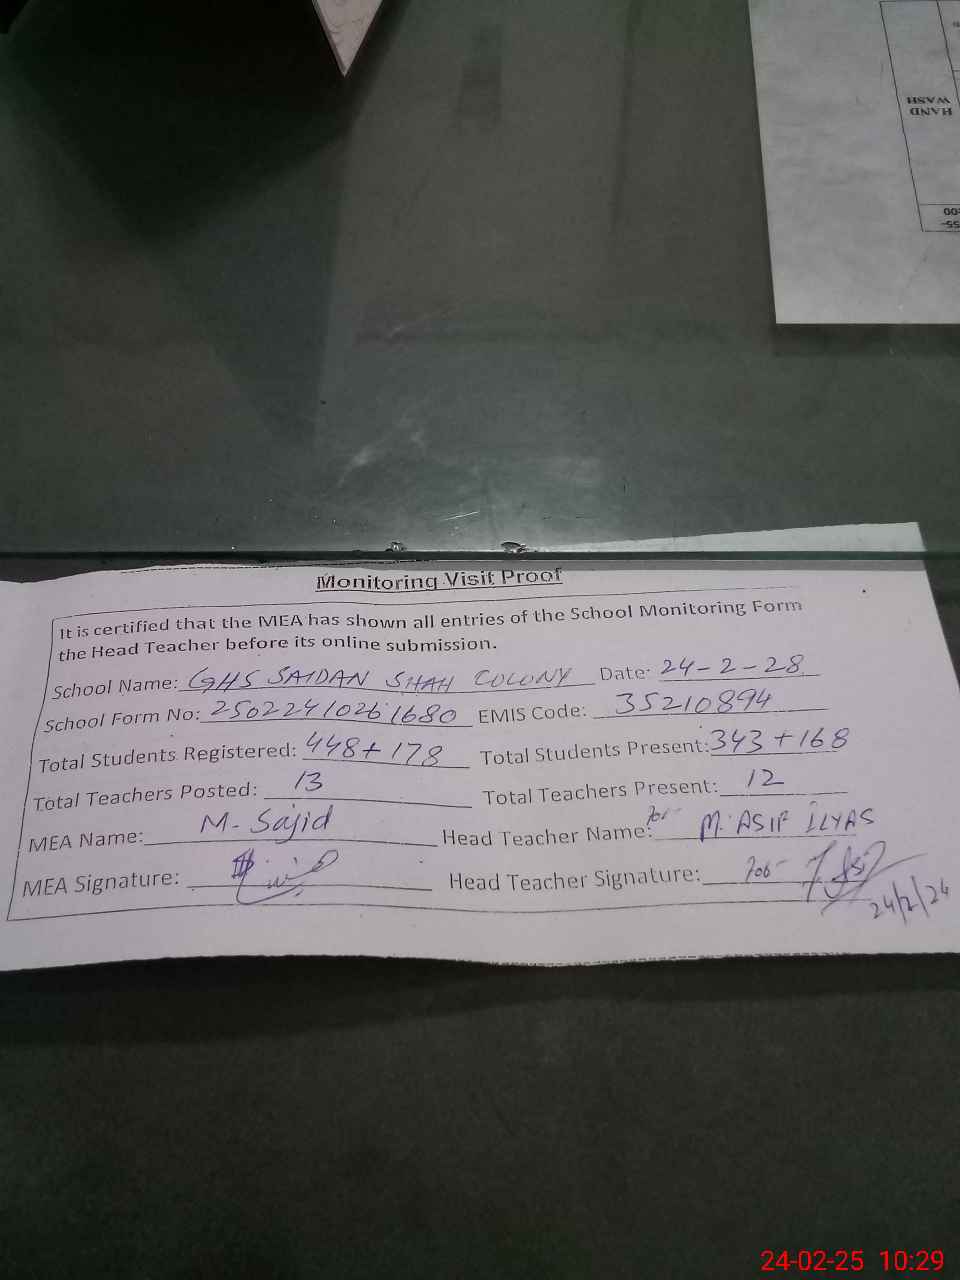 HAND
WASH
Monitoring Visit Proof
It is certified that the MEA has shown all entries of the School Monitoring Form
the Head Teacher before its online submission.
School Name: GHS SAIDAN SHAH COLONY Date: 24-2-28
School Form No: 25022410261680 EMIS Code: 35210894
Total Students Registered: 448+178 Total Students Present: 343+168
Total Teachers Posted: 13 Total Teachers Present: 12
MEA Name: M. Sajid Head Teacher Name: for M. ASIF ILYAS
MEA Signature: Head Teacher Signature: for
24/2/24
24-02-25 10:29